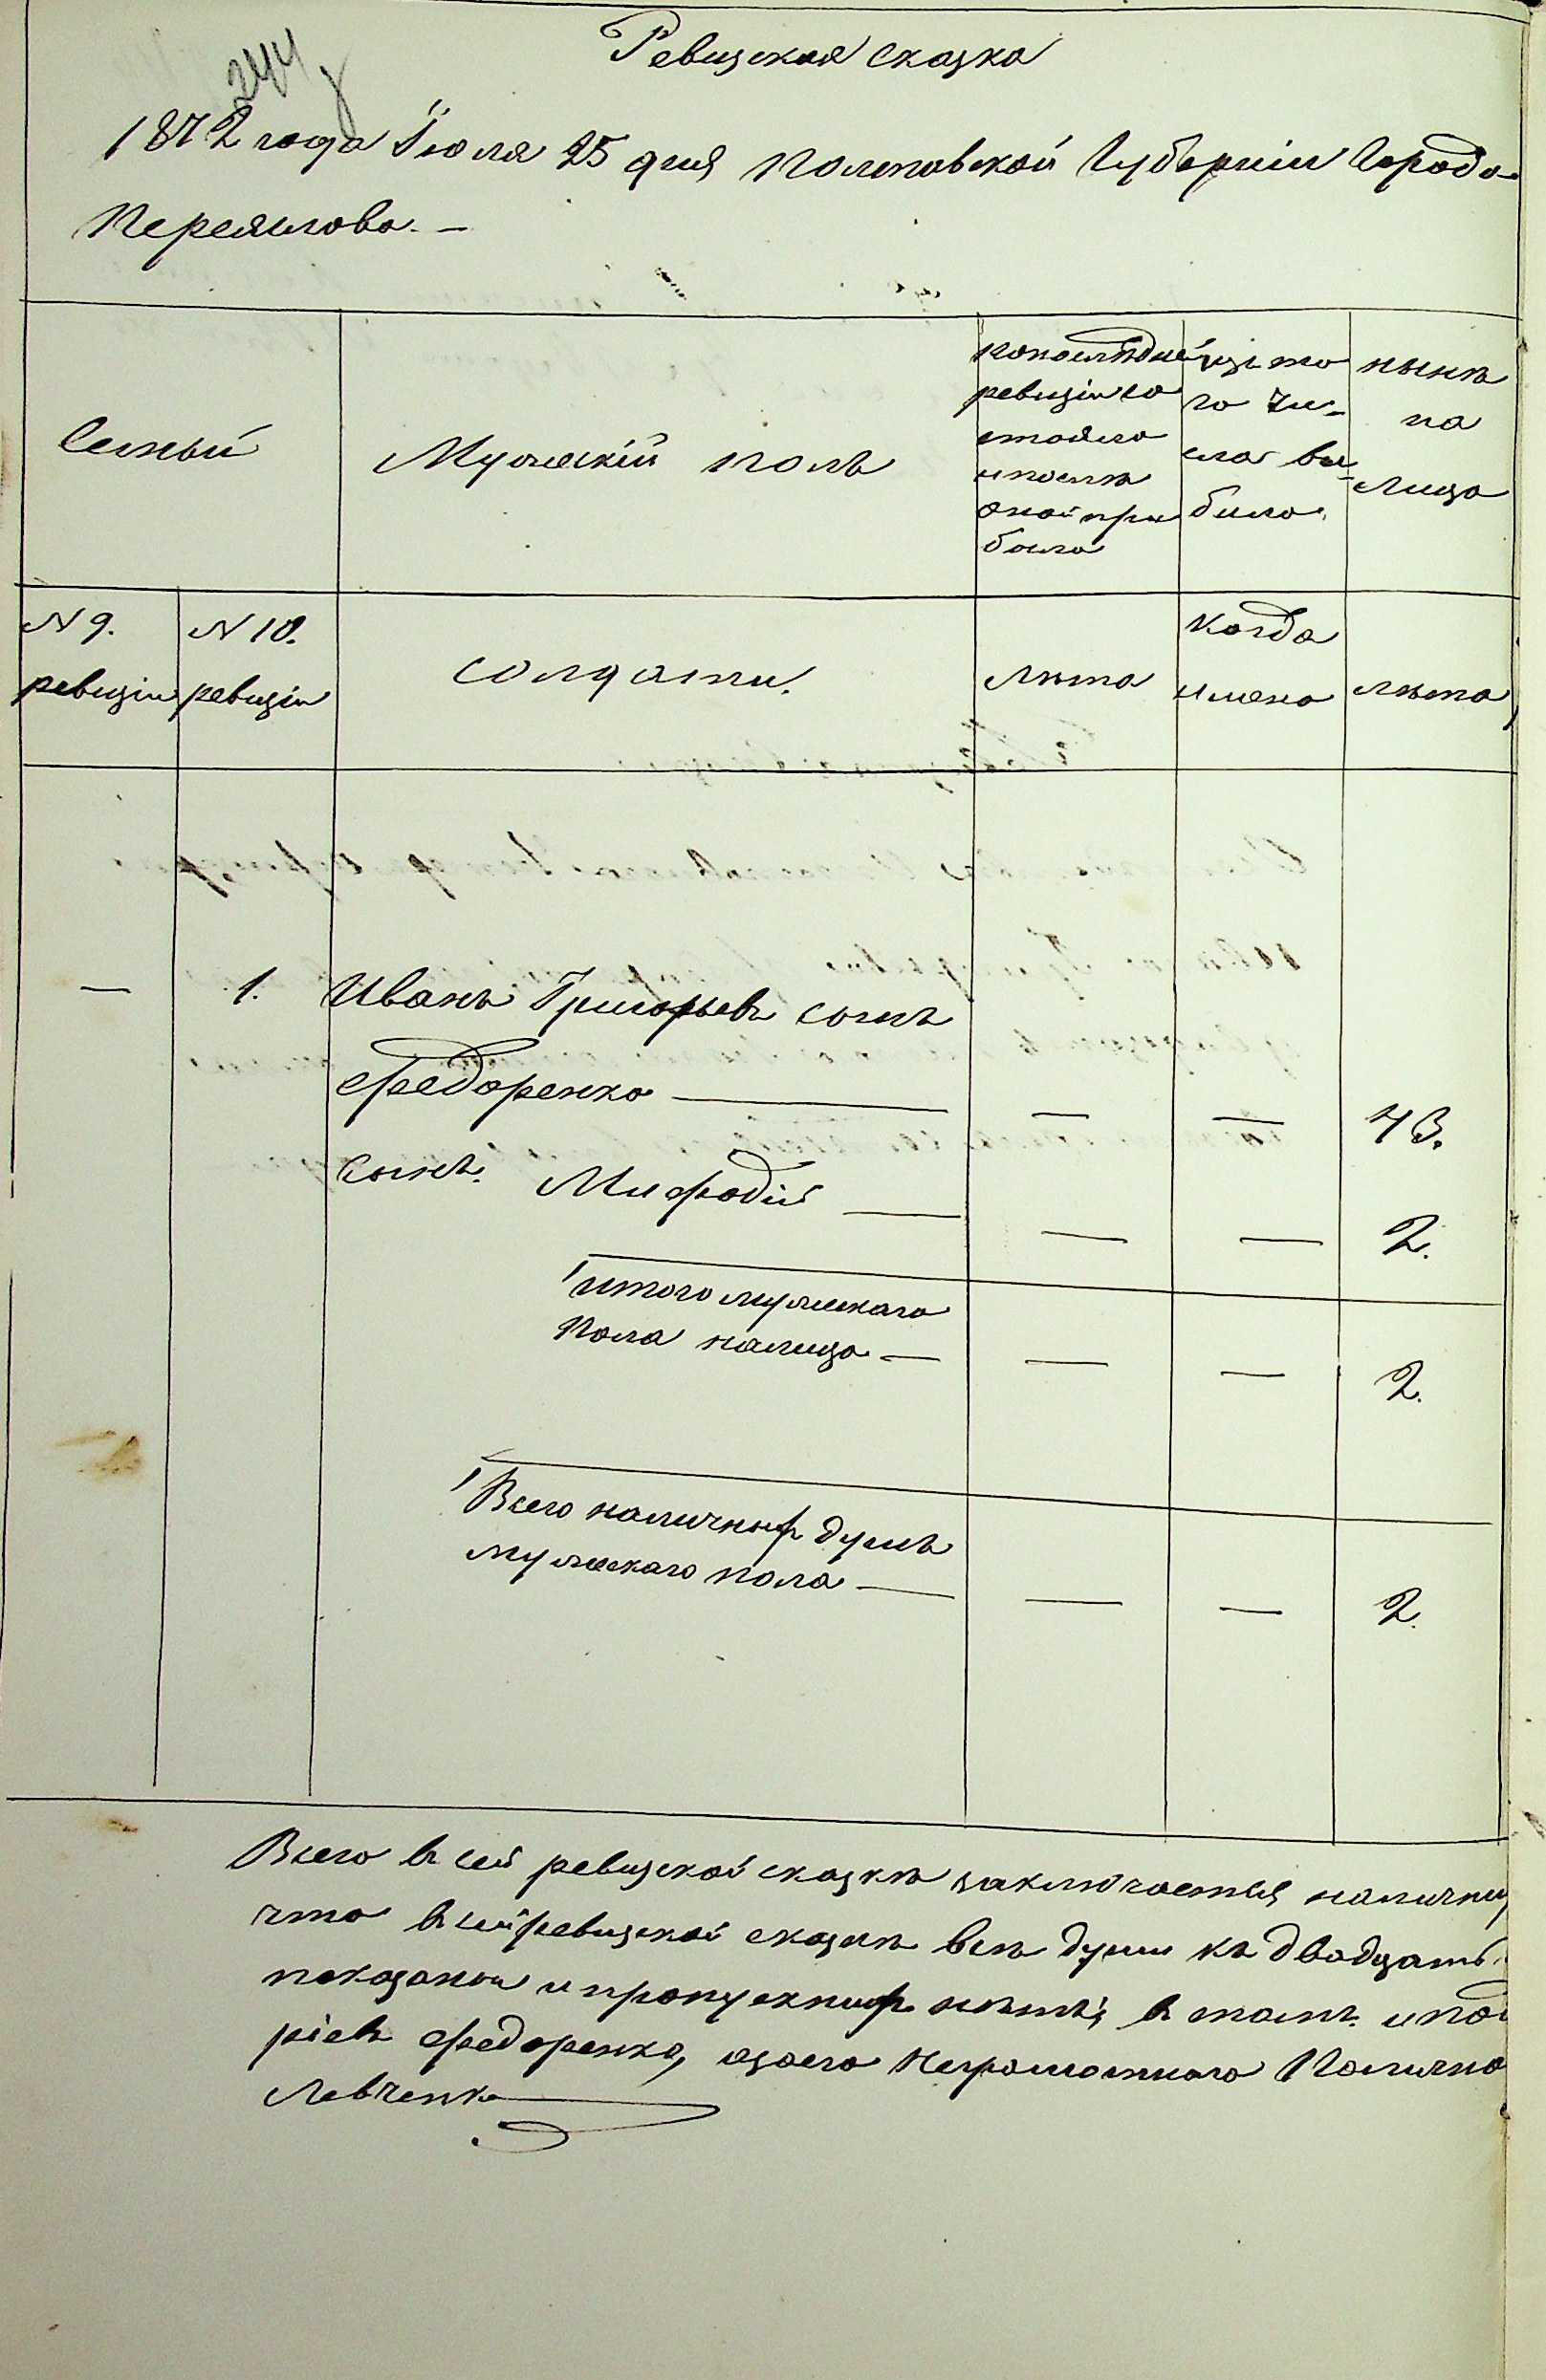 244
Ревизская сказка
1872 года Іюля 25 дня Полтавской Губерніи Города
Переяслова. —
Семьи
Мужескій полъ
по последней
ревизіи со
стояло
и после
оной при
было
изъ то
го чи-
сла вы-
било
ныне
на
лицо
N 9.
ревизіи
N 10.
ревизіи
солдаты.
лета
когда
имено
лета
— 1. Иванъ Григорьевъ сынъ
Федоренко — — — 43.
сынъ: Мифодій — — — 2.
итого мужескаго
пола налицо — — — 2.
Всего наличныхъ душъ
мужескаго пола — — — 2.
Всего в сей ревизской сказке заключается наличны
что в сей ревизской сказке все души къ двадцать
показаны и пропускныхъ нетъ; в томъ и под
ріевъ Федоренко, а за его неграмотнаго
Левченко